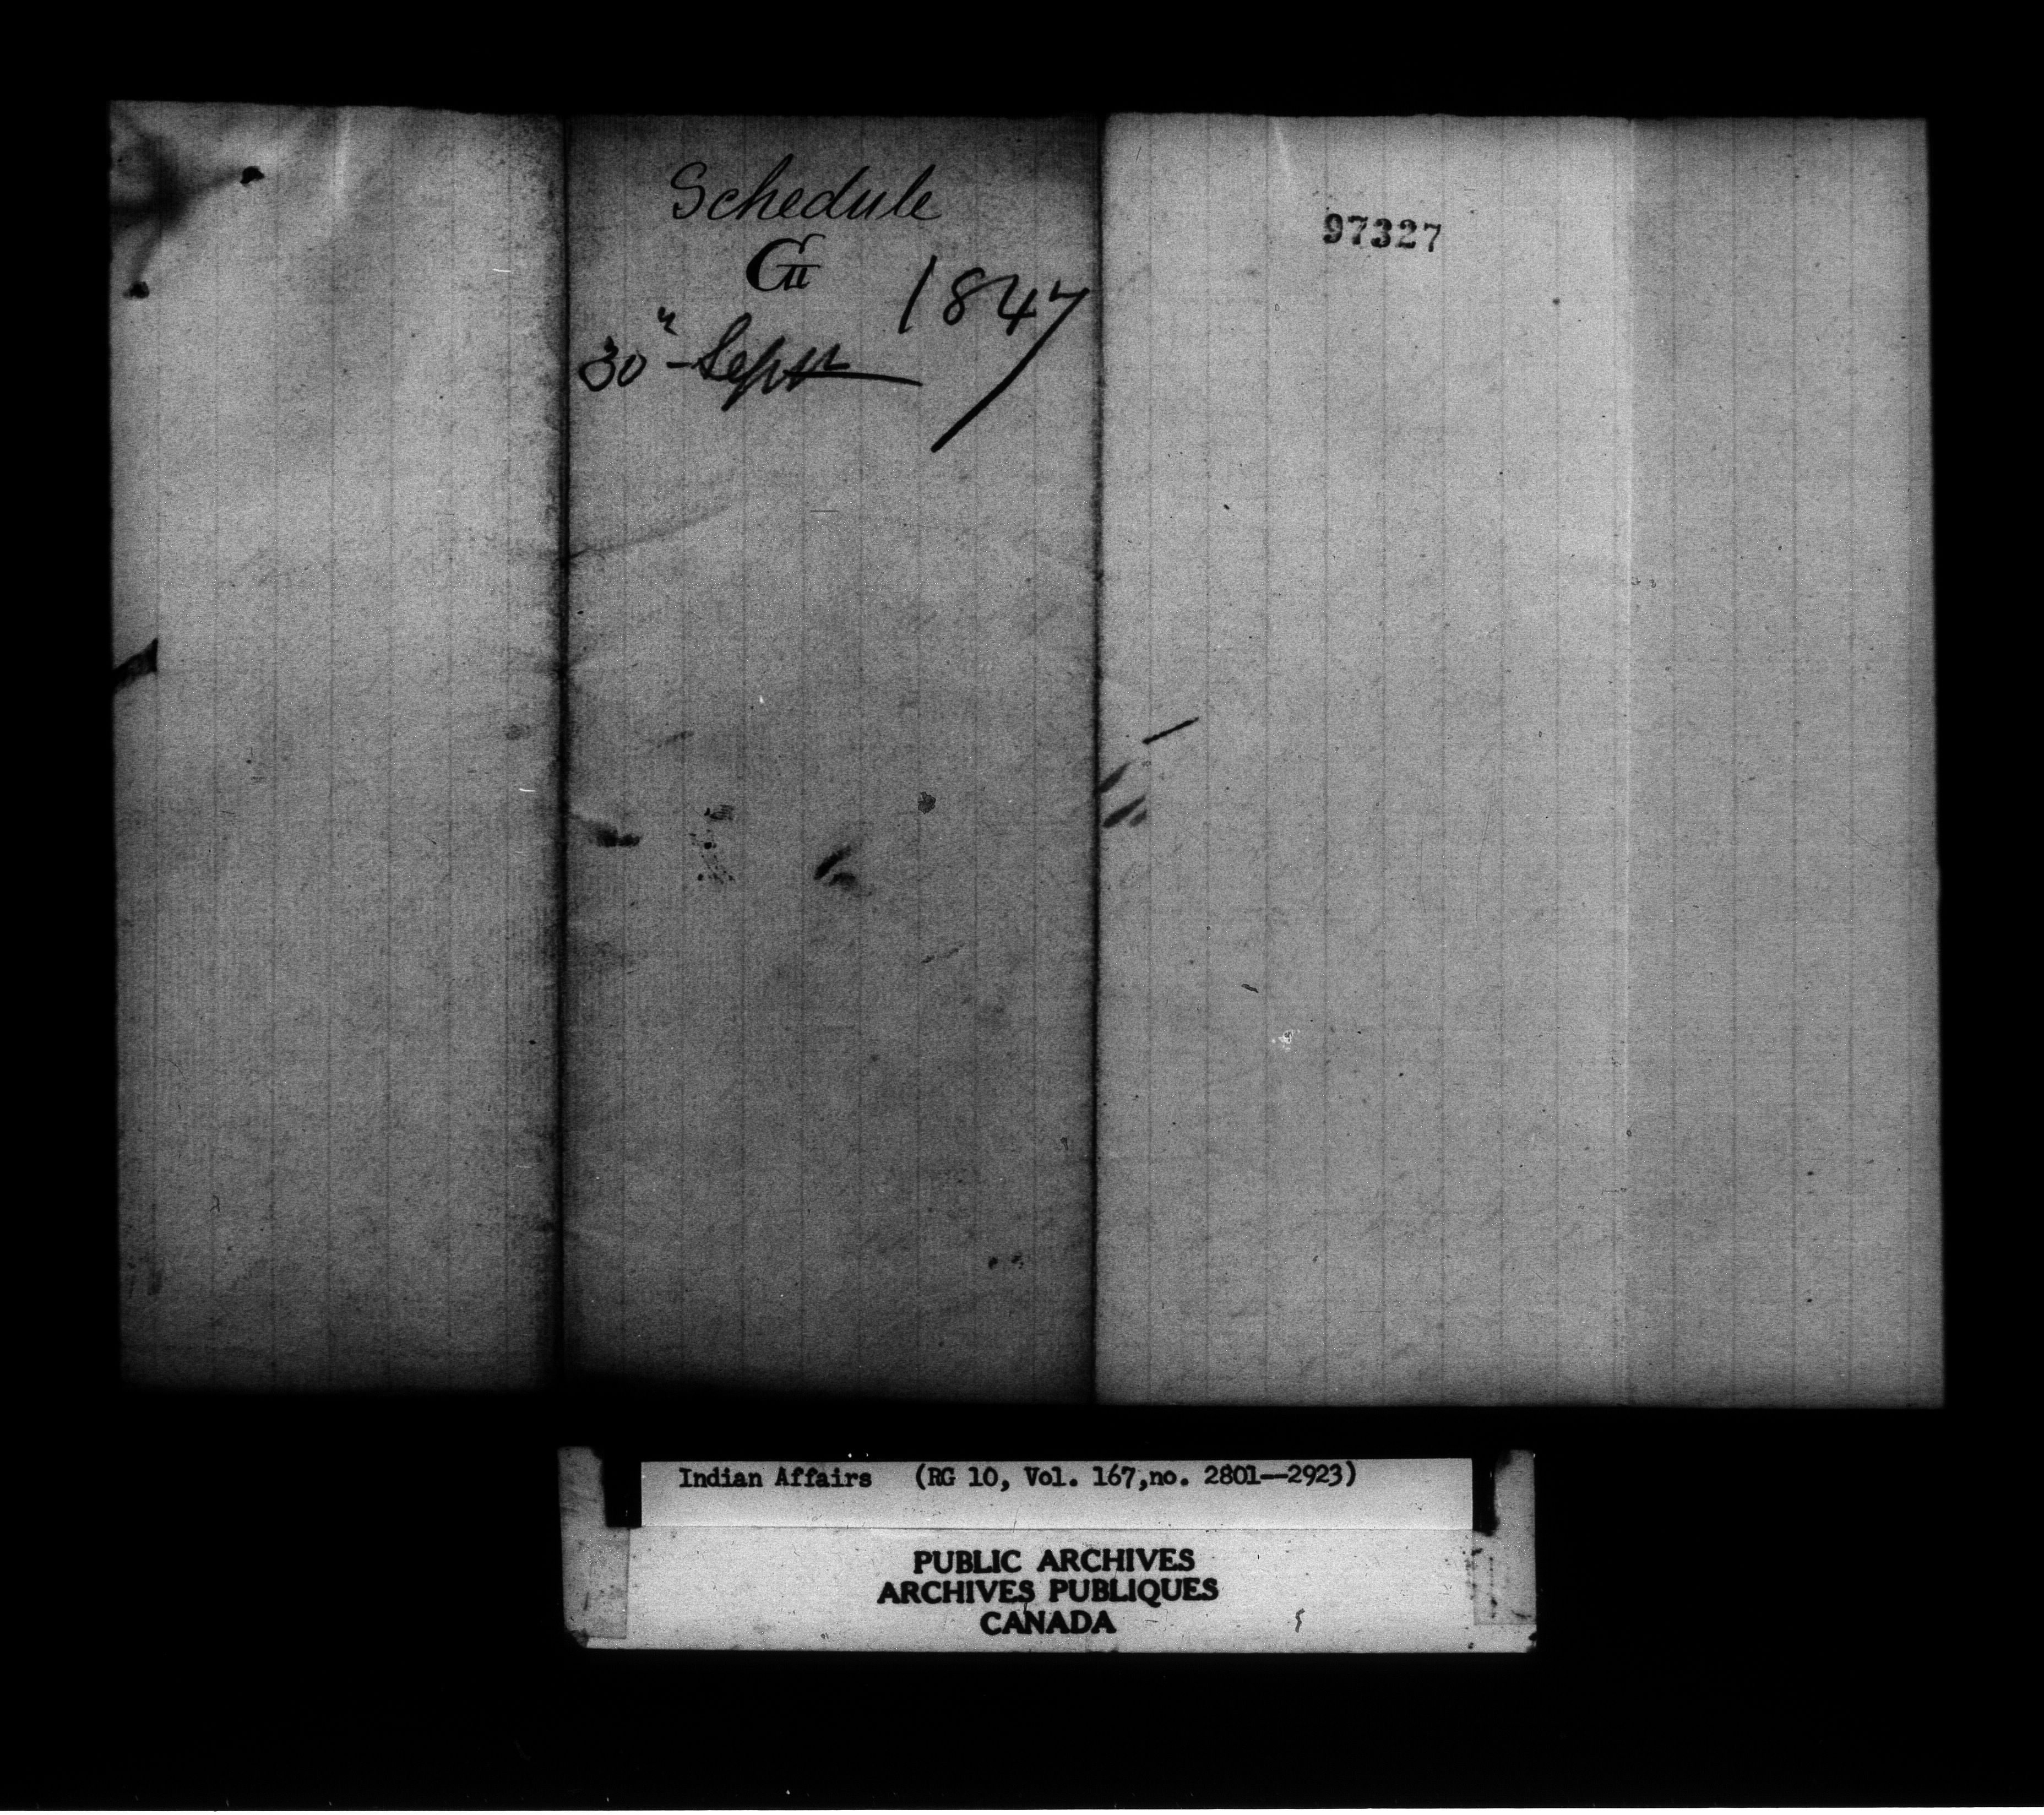 Schedule
G
1847
30" Sept
97327
Indian Affairs (RG 10, Vol. 167,no. 2801--2923)
PUBLIC ARCHIVES
ARCHIVES PUBLIQUES
CANADA